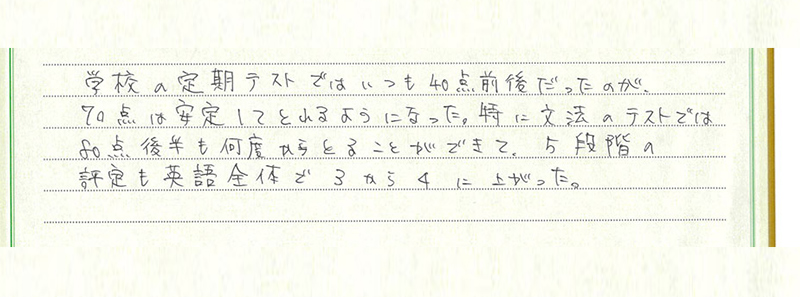 学校の定期テストではいつも40点前後だったのが、
70点は安定してとれるようになった。特に文法のテストでは
80点後半も何度からとることができて、5段階の
評定も英語全体で3から4に上がった。